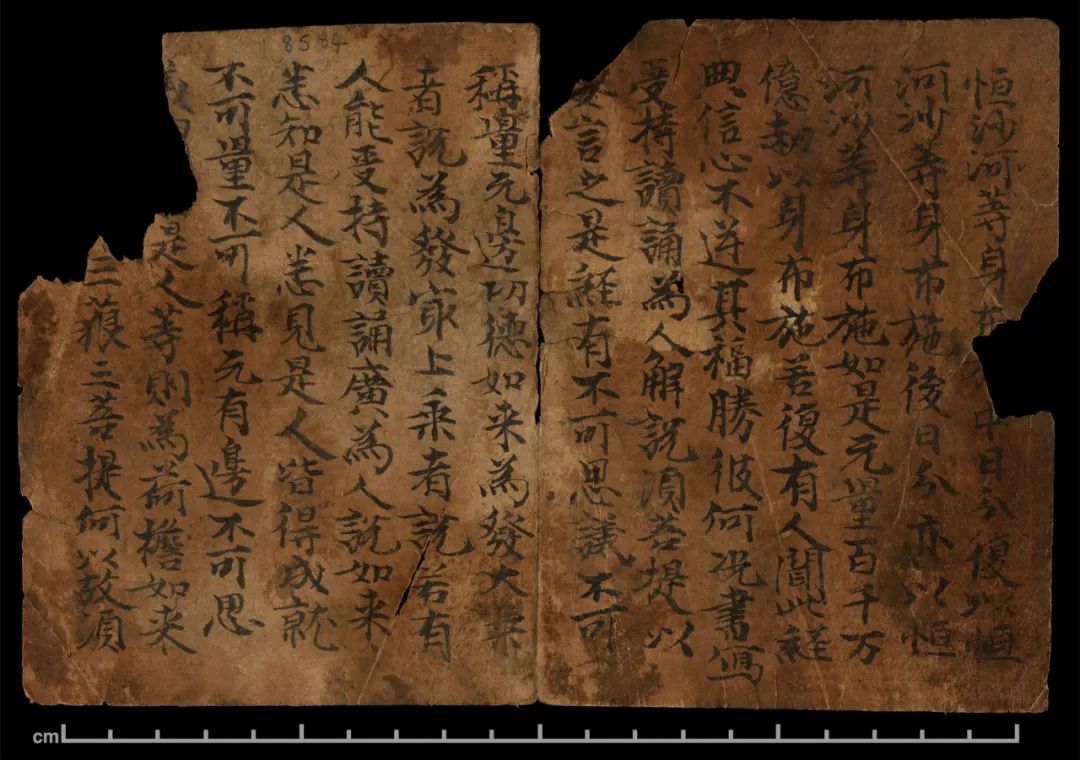 8584
恒沙河等身布中日分復以恒
河沙等身布施後日分亦以恒
河沙等身布施如是无量百千万
億劫以身布施若復有人聞此經
典信心不逆其福勝彼何況書寫
受持讀誦為人解說須菩提以
要言之是經有不可思議不可
稱量无邊功德如来為發大乗
者說為發冣上乗者說若有
人能受持讀誦廣為人說如来
悉知是人悉見是人皆得成就
不可量不可稱无有邊不可思
是人等則為荷檐如来
三藐三菩提何以故須
cm